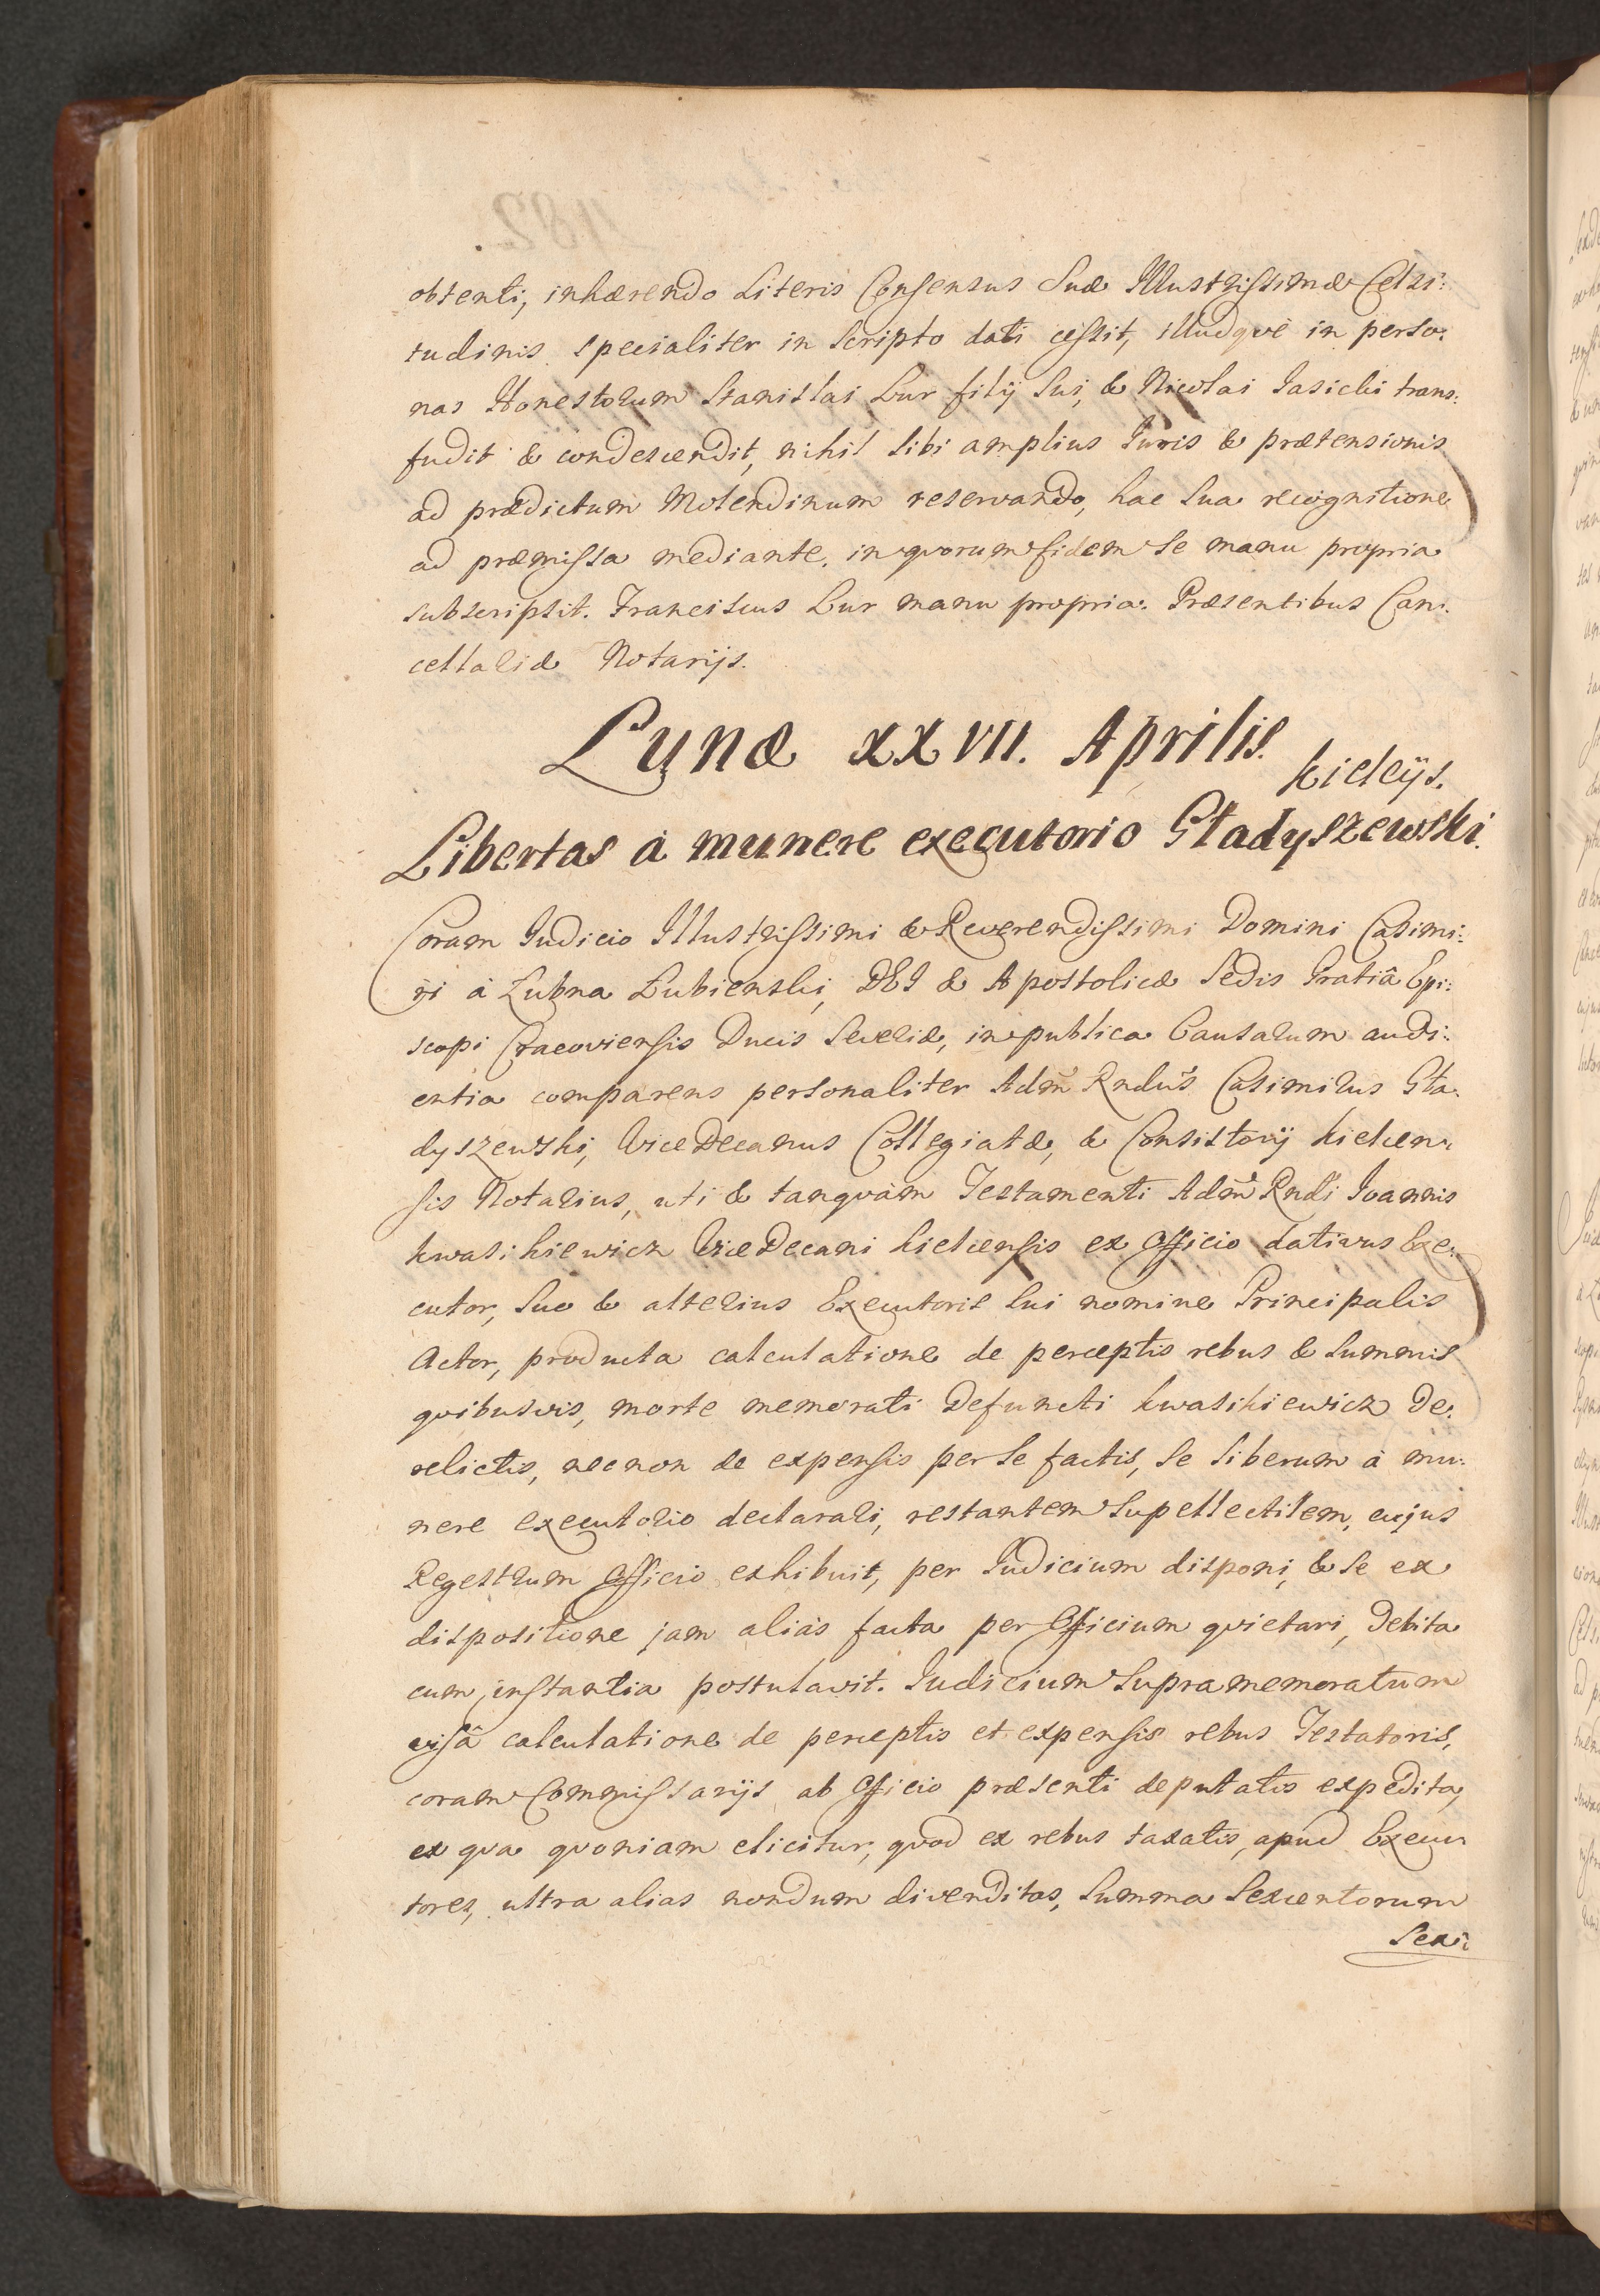 obtenti, inhærendo Literis Consensus Suæ Illustrissimæ Celsi:
tudinis specialiter in scripto dati cessit, illudqvè in perso:
nas Honestorum Stanislai Lur filij sui, & Nicolai Jasicki trans:
fudit & condescendit, nihil sibi amplius Juris & prætensionis
ad prædictum Molendinum reservando, hac sua recognitione
ad præmissa mediante, in qvorum fidem se manu propria
subscripsit. Franciscus Lur manu propria. Præsentibus Can:
cellariæ Notarijs.
Lunæ XXVII. Aprilis.
Kielcijs.
Libertas à munere executorio Gładyszewski.
Coram Judicio Illustrissimi & Reverendissimi Domini Casimi:
ri à Łubna Łubienski, DEI & Apostolicæ Sedis Gratiâ Epi:
scopi Cracoviensis Ducis Severiæ, in publica Causarum audi:
entia comparens personaliter Adm̃ Rndus̃ Casimirus Gła:
dyszewski, ViceDecanus Collegiatæ, & Consistorij Kielcen:
sis Notarius, uti & tanqvàm Testamenti Adm̃ Rndi Joannis
Kwasikiewicz ViceDecani Kielcensis ex Officio dativus Exe:
cutor, suo & alterius Executoris sui nomine Principalis
Actor, producta calculatione de perceptis rebus & summis
qvibusvis, morte memorati Defuncti Kwasikiewicz De:
relictis, necnon de expensis per se factis, se liberum à mu:
nere executorio declarari, restantem supellectilem, cujus
Regestrum Officio exhibuit, per Judicium disponi, & se ex
dispositione jam aliàs facta per Officium qvietari, Debita
cum instantia postulavit. Judicium Supramemoratum
visâ calculatione de perceptis et expensis rebus Testatoris,
coram Commissarijs ab Officio præsenti deputatis expedita,
ex qva qvoniam elicitur, qvod ex rebus taxatis, apud Execu
tores, ultra alias nondum divenditas, summa Sexcentorum
Sexa: